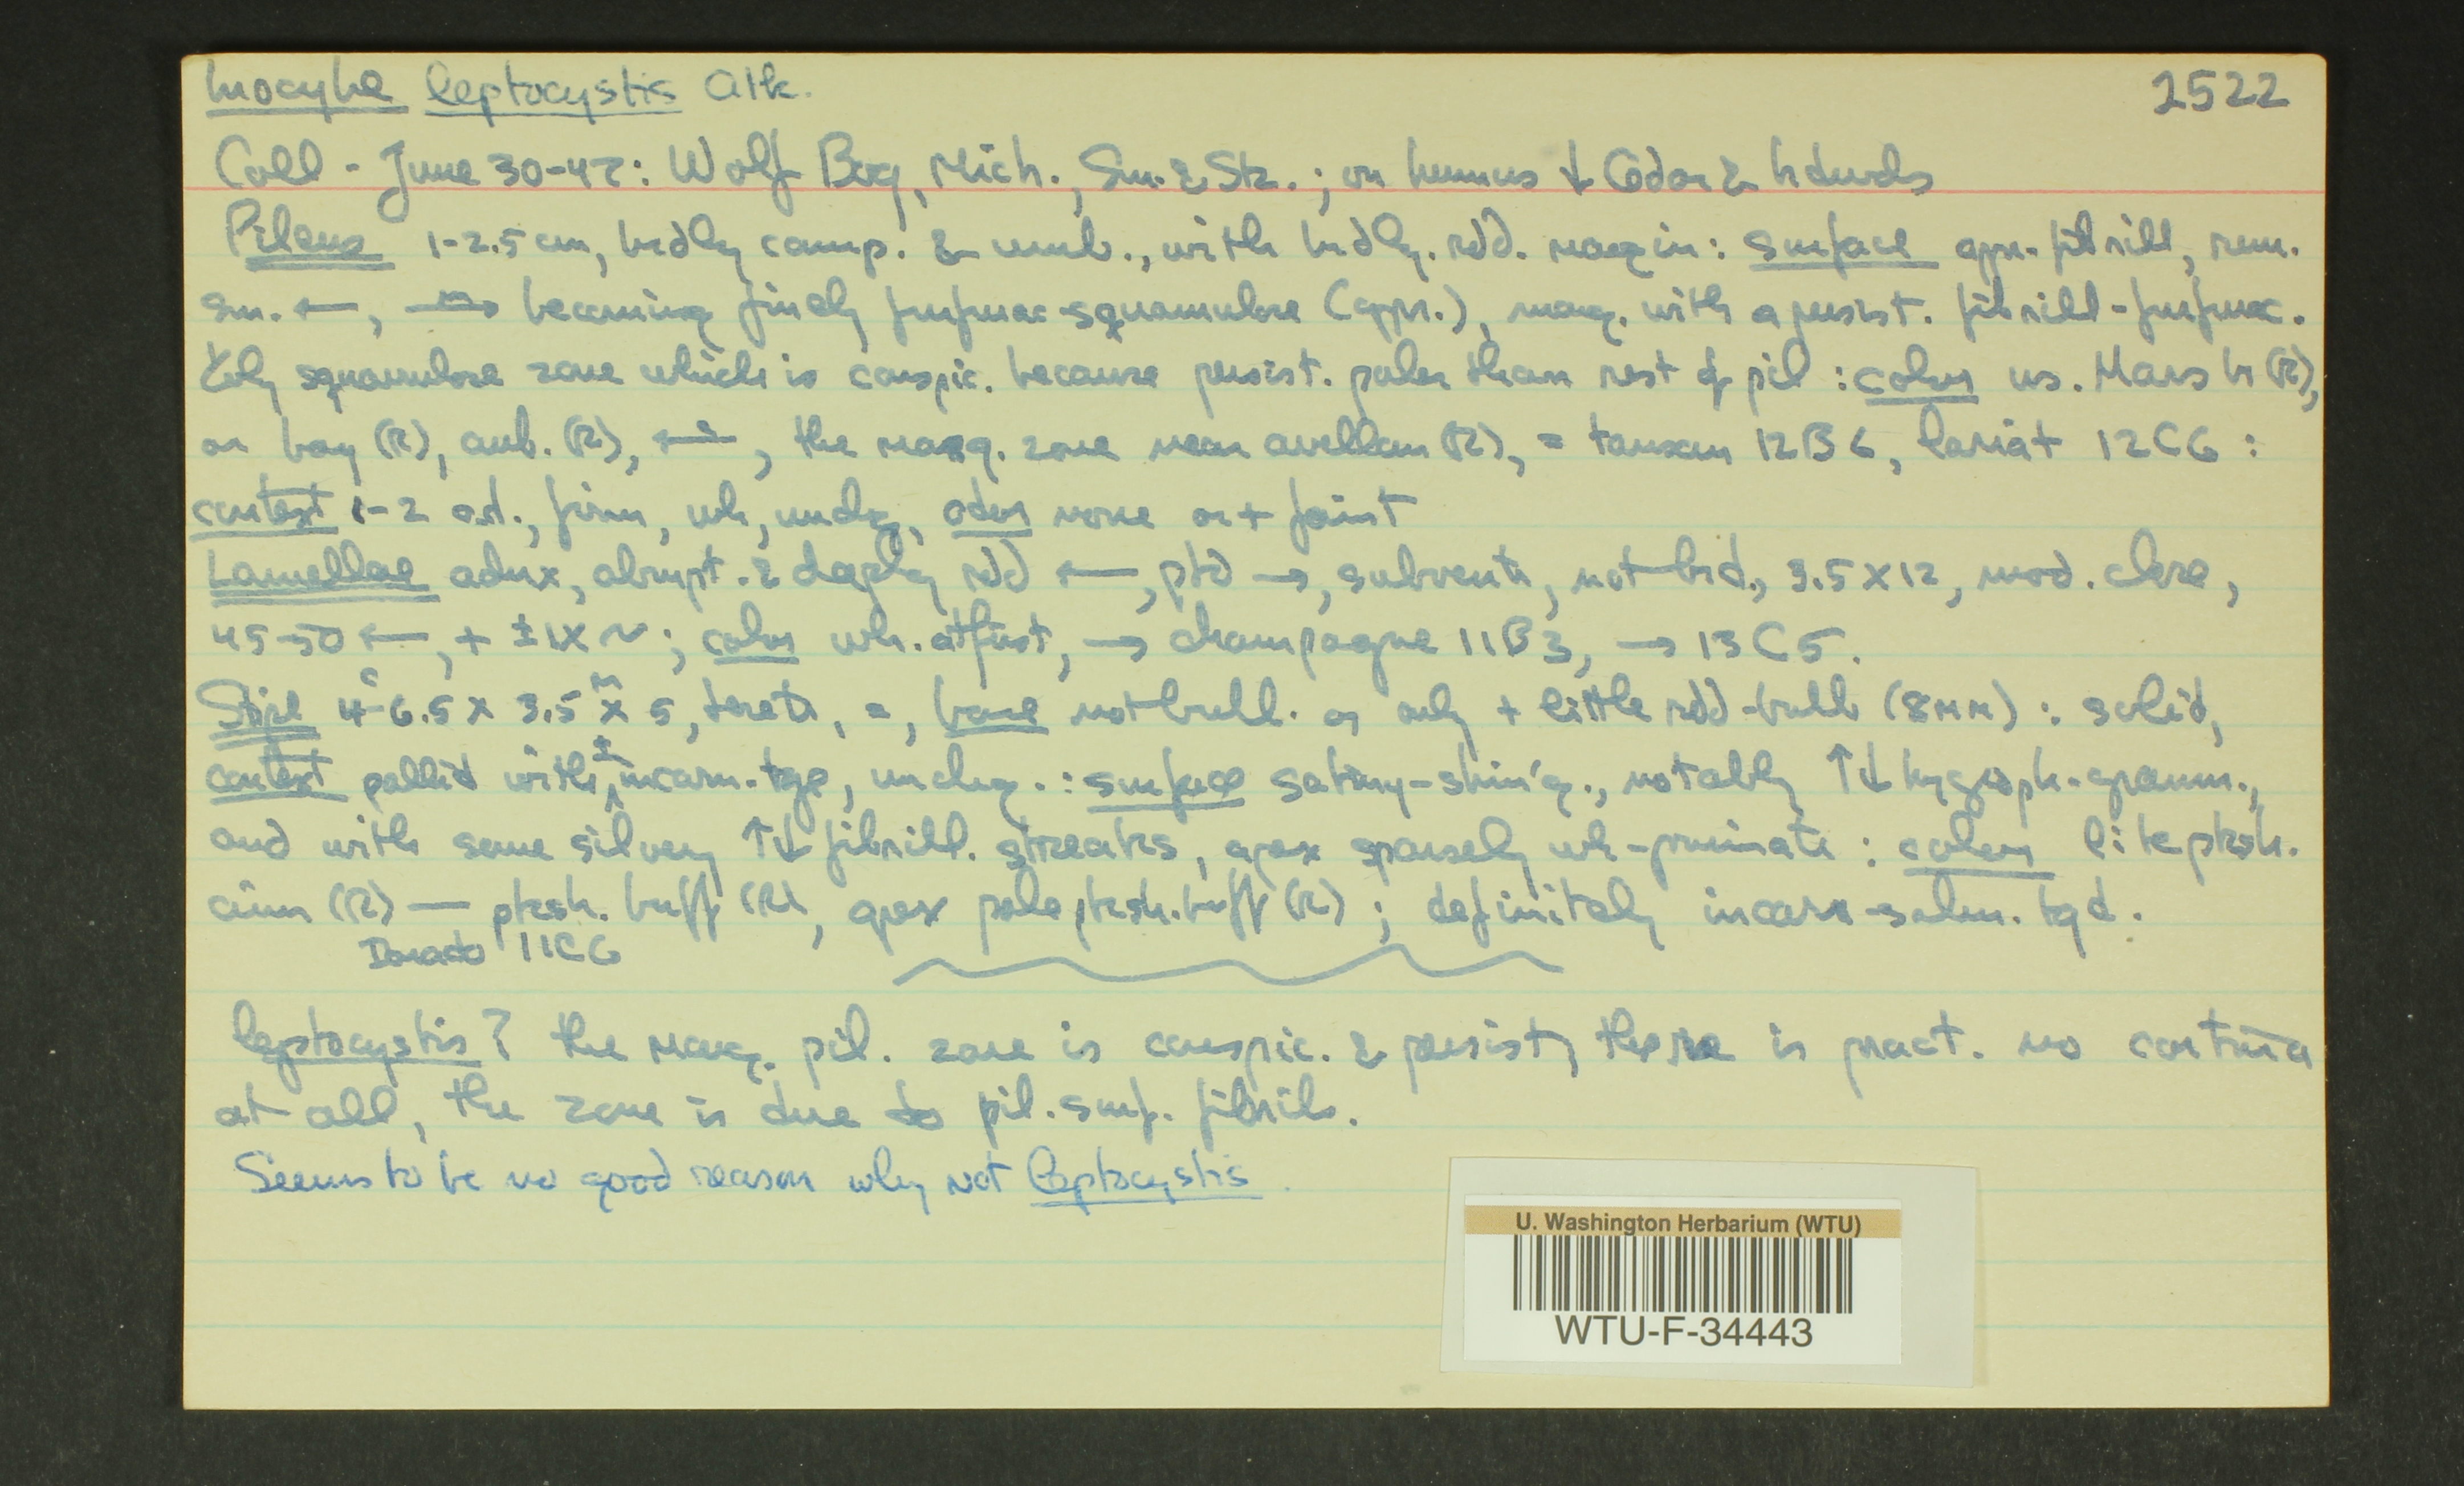 Inocybe leptocystis Atk. 2522
Coll - June 30-47: Wolf Bog, Mich., Sm. & Stz.; on humus ↓ Cedar & hdwds
Pileus 1-2.5 cm, brdly camp. & umb., with brdly. rdd. margin: surface appr. fibrill, rem.
sm. ←, becoming finely furfurac-squamulose (appr.), marg. with a persist. fibrill-furfurac.
squamulose zone which is conspic. because persist. paler than rest of pil: color us. Mars br (R),
or bay (R), aub. (R), the marg. zone near avellan (R), = 12B6, lariat 12C6:
context 1-2 a.d., firm, wh, unchg, odor none or + faint
Lamellae adnx, abrupt. & deeply rdd ←, ptd →, subventr, not brd., 3.5 x 12, mod. close,
45-50 ←, + ± 1X ~; color wh. at first, → champagne 11B3, → 13C5.
Stipe 4-6.5 c x 3.5 x 5 m, terete, =, base not bulb. or only + little rdd-bulb (8mm): solid,
context pallid with ± incarn. tge, unchg.: surface satiny-shin'g., notably ↑↓ hygroph-gramm.,
and with some silvery ↑↓ fibrill. streaks, apex sparsely wh-pruinate: color lite pksh.
cinn (R) — pksh. buff (R), apex pale pksh. buff (R); definitely incarn-salm. tgd.
Dorado 11C6
leptocystis? the marg. pil. zone is conspic. & persist, there is pract. no cortina
at all, the zone is due to pil. surf. fibrils.
Seems to be no good reason why not leptocystis.
U. Washington Herbarium (WTU)
WTU-F-34443